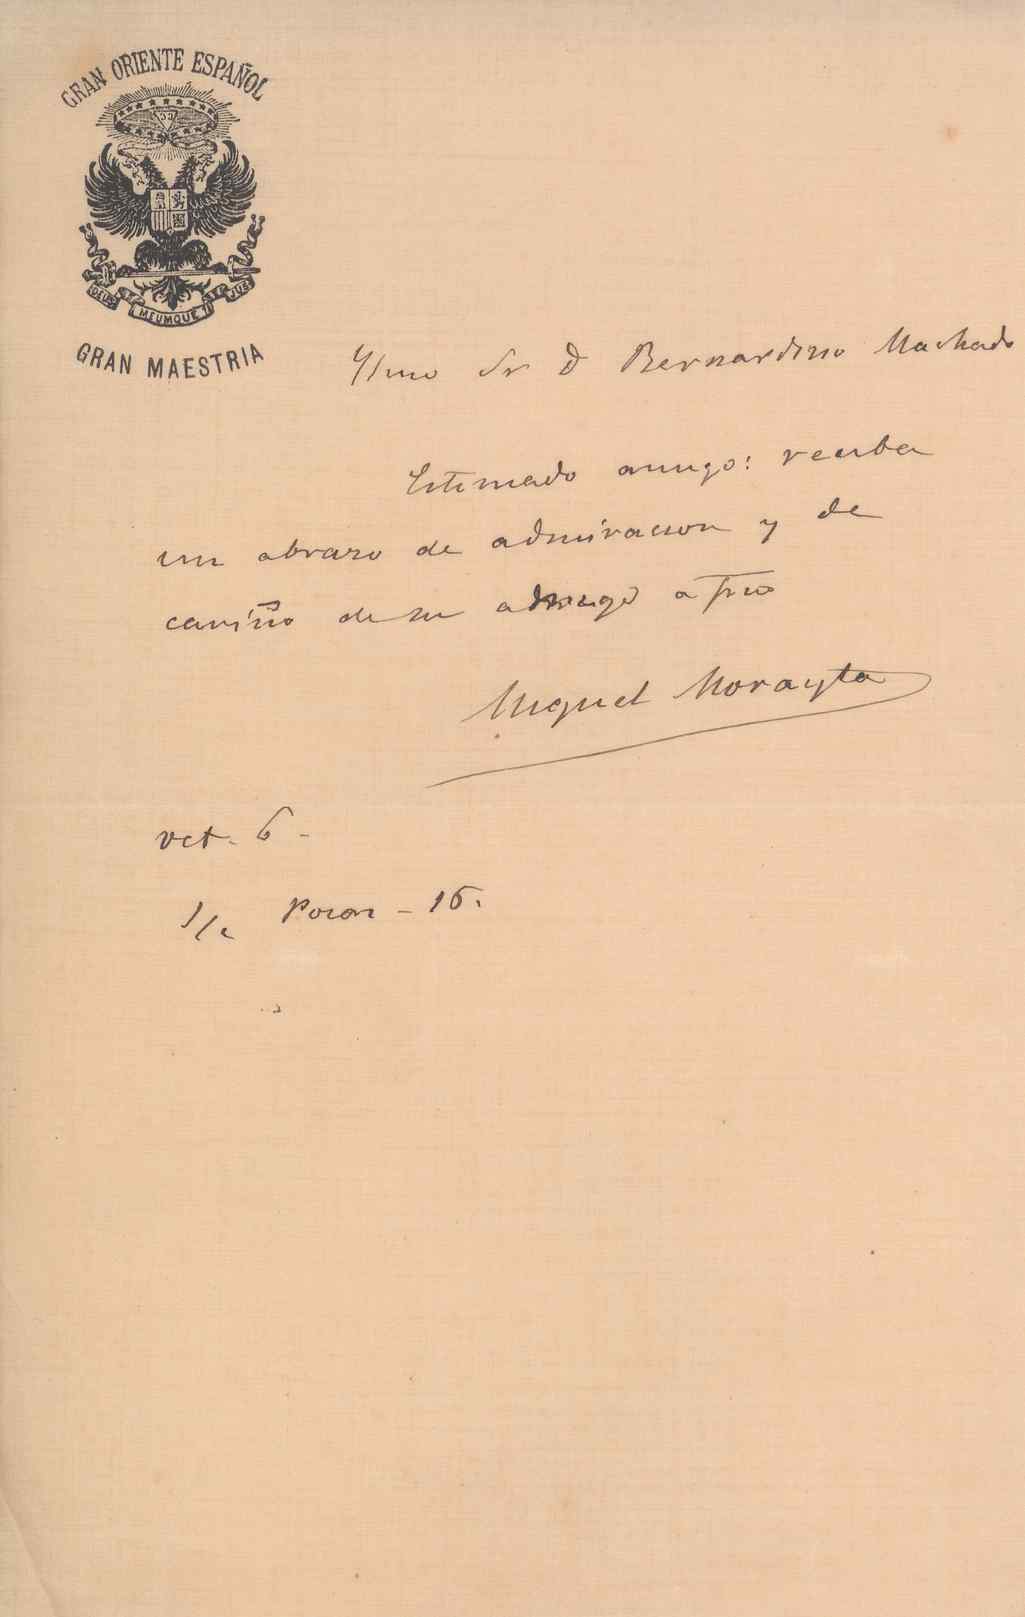 GRAN ORIENTE ESPAÑOL
DEUS MEUMQUE JUS
GRAN MAESTRIA
Ylmo Sr D Bernardino Machado
Estimado amigo: reciba
un abrazo de admiracion y de
cariño de su amigo afmo
Miguel Morayta
oct. 6-
S/c Pozas - 16.